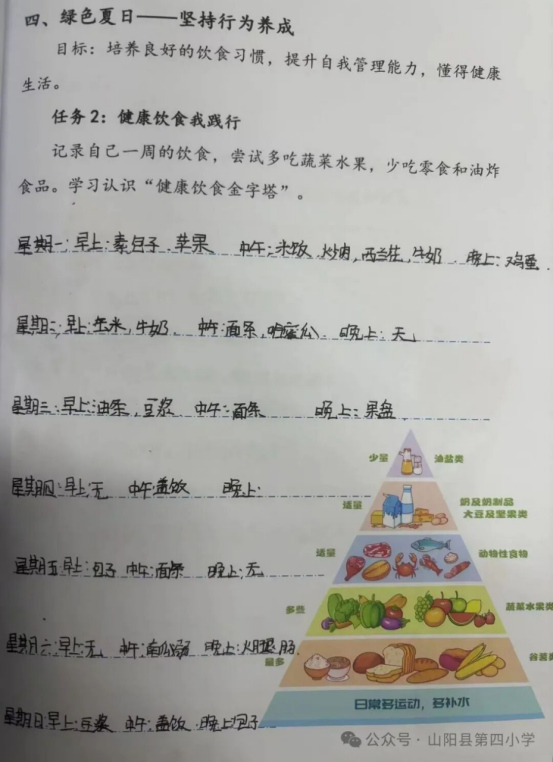 四、绿色夏日——坚持行为养成
目标：培养良好的饮食习惯，提升自我管理能力，懂得健康
生活。
任务2：健康饮食我践行
记录自己一周的饮食，尝试多吃蔬菜水果，少吃零食和油炸
食品。学习认识“健康饮食金字塔”。
星期一：早上：素包子 苹果 中午：米饭，火烔，西兰花，牛奶 晚上：鸡蛋.
星期二：早上：玉米，牛奶. 中午：面条，哈蜜瓜. 晚上：无
星期三：早上：油条，豆浆 中午：面条 晚上：果盘
少量 油盐类
星期四：早上：无 中午：盖饭 晚上：
适量 奶及奶制品
大豆及坚果类
适量 动物性食物
星期五早上：包子 中午：面条 晚上：无
多些 蔬菜水果类
星期六：早上：无 中午：南瓜粥 晚上：火腿肠
最多 谷薯类
日常多运动，多补水
星期日：早上：豆浆 中午：盖饭 晚上：包子
公众号·山阳县第四小学